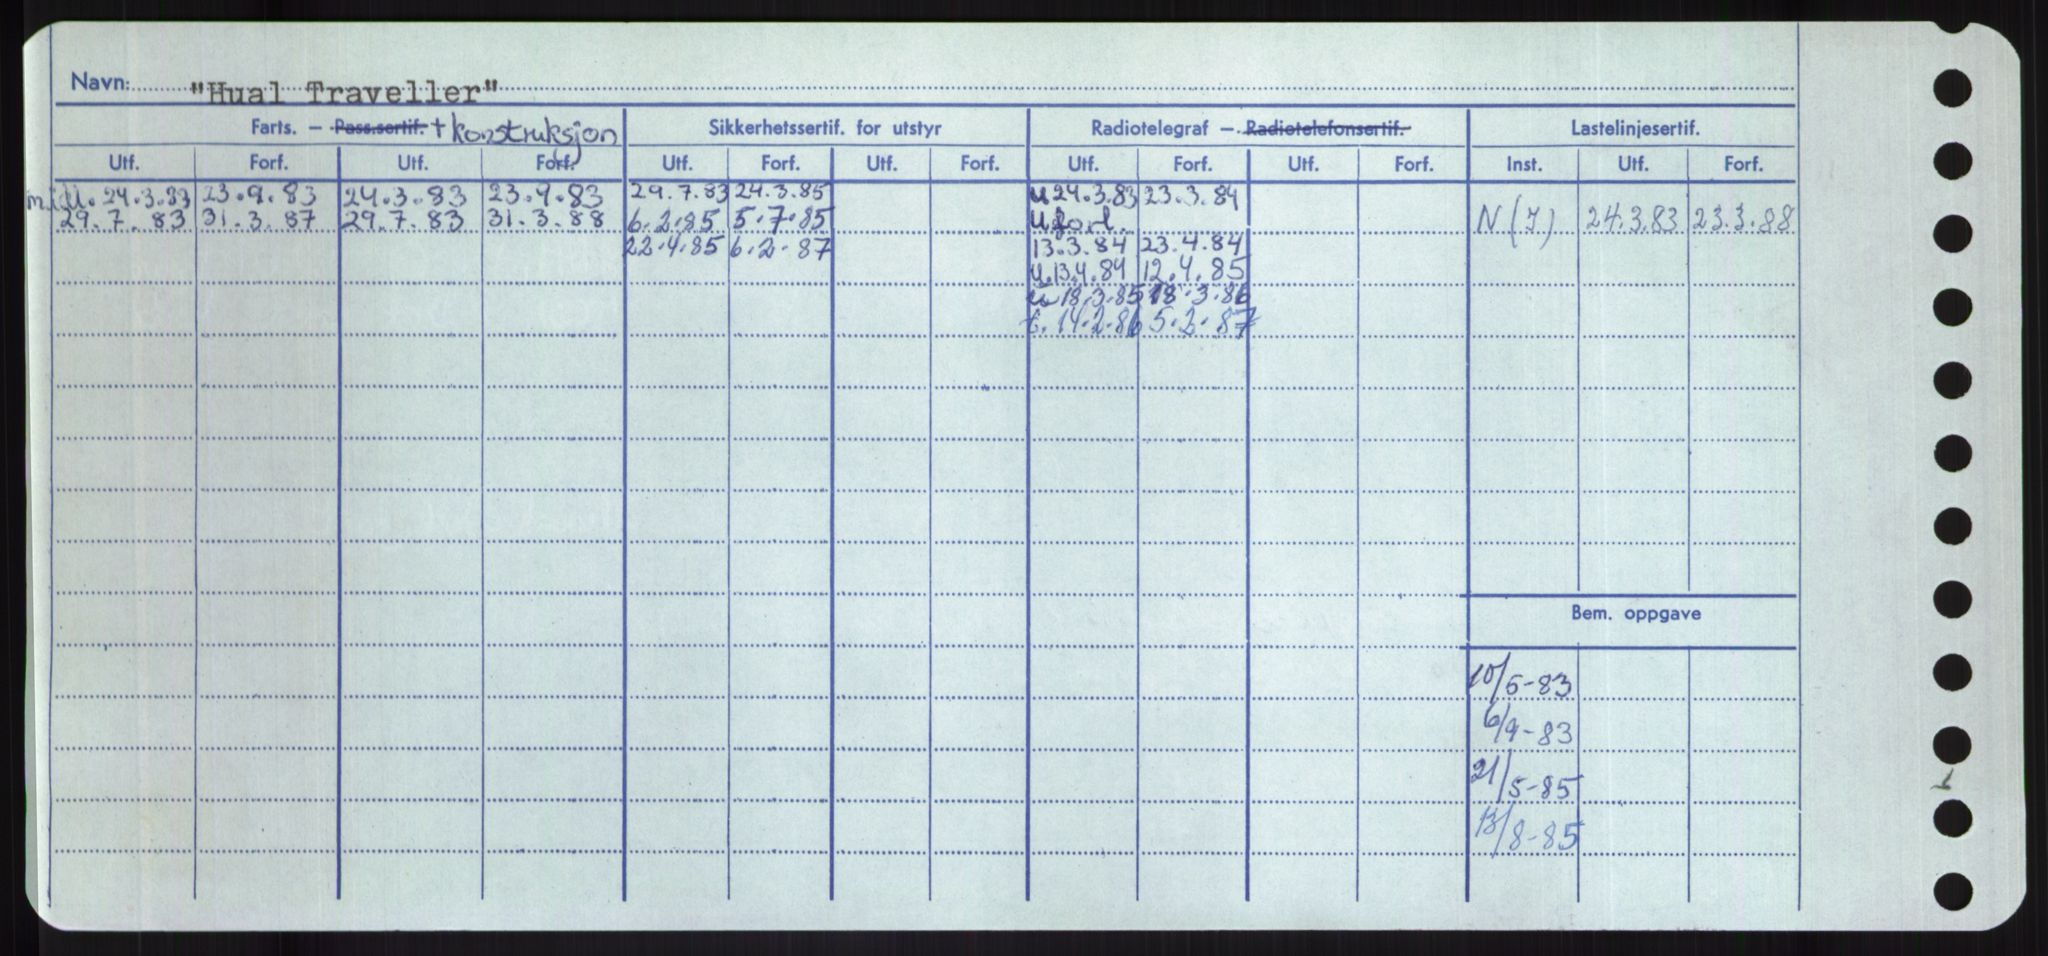 Navn: "Hual Traveller"
Farts. — Pass.sertif. + konstruksjon Sikkerhetssertif. for utstyr Radiotelegraf — Radiotelefonsertif. Lastelinjesertif.
Utf. Forf. Utf. Forf. Utf. Forf. Utf. Forf. Utf. Forf. Utf. Forf. Inst. Utf. Forf.
midl. 24.3.83 23.9.83 24.3.83 23.9.83 29.7.83 24.3.85 u 24.3.83 23.3.84
29.7.83 31.3.87 29.7.83 31.3.88 6.2.85 5.7.85 U forl. N (I) 24.3.83 23.3.88
22.4.85 6.2.87 13.3.84 23.4.84
u.13.4.84 12.4.85
u 18.3.85 18.3.86
t. 14.2.86 5.2.87
Bem. oppgave
10/5-83
6/9-83
21/5-85
13/8-85